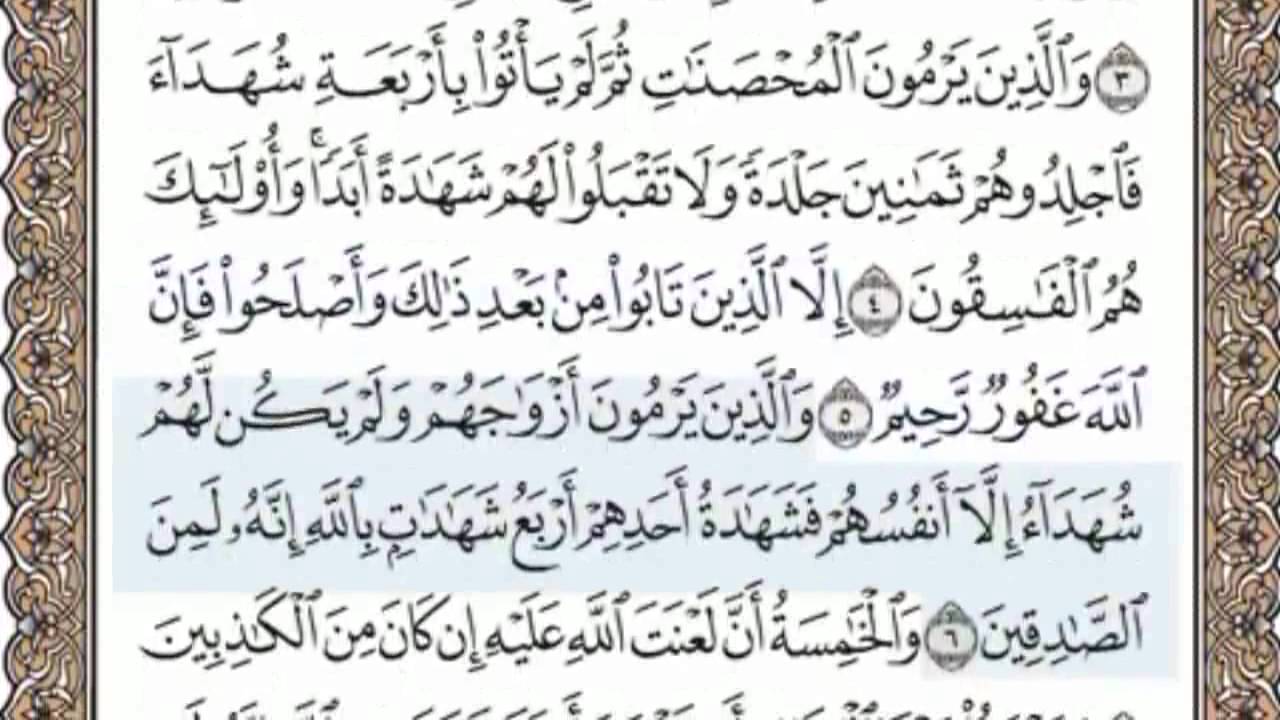 ٣ وَٱلَّذِينَ يَرْمُونَ ٱلْمُحْصَنَٰتِ ثُمَّ لَمْ يَأْتُوا۟ بِأَرْبَعَةِ شُهَدَآءَ
فَٱجْلِدُوهُمْ ثَمَٰنِينَ جَلْدَةً وَلَا تَقْبَلُوا۟ لَهُمْ شَهَٰدَةً أَبَدًا ۚ وَأُو۟لَٰٓئِكَ
هُمُ ٱلْفَٰسِقُونَ ٤ إِلَّا ٱلَّذِينَ تَابُوا۟ مِنۢ بَعْدِ ذَٰلِكَ وَأَصْلَحُوا۟ فَإِنَّ
ٱللَّهَ غَفُورٌ رَّحِيمٌ ٥ وَٱلَّذِينَ يَرْمُونَ أَزْوَٰجَهُمْ وَلَمْ يَكُن لَّهُمْ
شُهَدَآءُ إِلَّآ أَنفُسُهُمْ فَشَهَٰدَةُ أَحَدِهِمْ أَرْبَعُ شَهَٰدَٰتٍۭ بِٱللَّهِ إِنَّهُۥ لَمِنَ
ٱلصَّٰدِقِينَ ٦ وَٱلْخَٰمِسَةُ أَنَّ لَعْنَتَ ٱللَّهِ عَلَيْهِ إِن كَانَ مِنَ ٱلْكَٰذِبِينَ